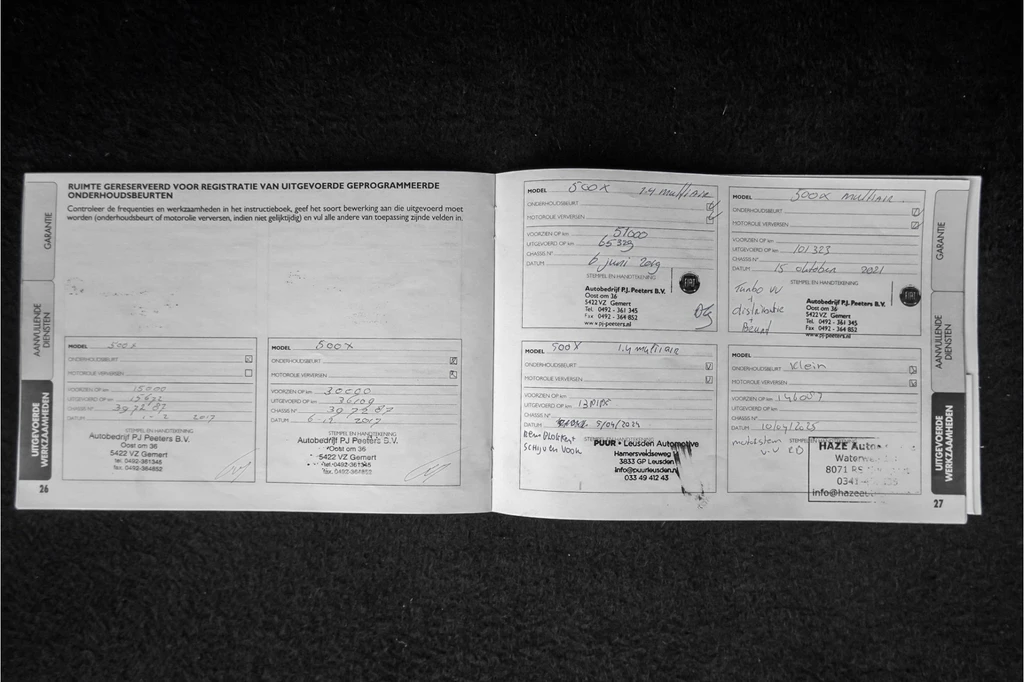 RUIMTE GERESERVEERD VOOR REGISTRATIE VAN UITGEVOERDE GEPROGRAMMEERDE
ONDERHOUDSBEURTEN
Controleer de frequenties en werkzaamheden in het instructieboek, geef het soort bewerking aan die uitgevoerd moet
worden (onderhoudsbeurt of motorolie verversen, indien niet gelijktijdig) en vul alle andere van toepassing zijnde velden in.
GARANTIE
AANVULLENDE
DIENSTEN
UITGEVOERDE
WERKZAAMHEDEN
26
MODEL 500X
ONDERHOUDSBEURT
MOTOROLIE VERVERSEN
VOORZIEN OP km 15000
UITGEVOERD OP km
CHASSIS N° 397287
DATUM 2017
STEMPEL EN HANDTEKENING
Autobedrijf PJ Peeters B.V.
Oost om 36
5422 VZ Gemert
tel. 0492-361345
fax. 0492-364852
MODEL 500X
ONDERHOUDSBEURT
MOTOROLIE VERVERSEN
VOORZIEN OP km 30000
UITGEVOERD OP km 36109
CHASSIS N° 397287
DATUM 2017
STEMPEL EN HANDTEKENING
Autobedrijf PJ Peeters B.V.
Oost om 36
5422 VZ Gemert
tel. 0492-361345
fax. 0492-364852
MODEL 500X 1.4 multiair
ONDERHOUDSBEURT
MOTOROLIE VERVERSEN
VOORZIEN OP km 51000
UITGEVOERD OP km 65329
CHASSIS N°
DATUM 6 juni 2019
STEMPEL EN HANDTEKENING
FIAT
Autobedrijf P.J. Peeters B.V.
Oost om 36
5422 VZ Gemert
Tel. 0492 - 361 345
Fax 0492 - 364 852
www.pj-peeters.nl
MODEL 500X multiair
ONDERHOUDSBEURT
MOTOROLIE VERVERSEN
VOORZIEN OP km
UITGEVOERD OP km 101323
CHASSIS N°
DATUM 15 oktober 2021
STEMPEL EN HANDTEKENING
Turbo VV
+
distributie
+
Beurt
FIAT
Autobedrijf P.J. Peeters B.V.
Oost om 36
5422 VZ Gemert
Tel. 0492 - 361 345
Fax 0492 - 364 852
www.pj-peeters.nl
MODEL 500X 1.4 multiair
ONDERHOUDSBEURT
MOTOROLIE VERVERSEN
VOORZIEN OP km
UITGEVOERD OP km
CHASSIS N°
DATUM 5/04/2024
Remblokken
Schijven Voor
PUUR - Leusden Automotive
Hamersveldseweg
3833 GP Leusden
info@puurleusden.nl
033 49 412 43
MODEL
ONDERHOUDSBEURT Klein
MOTOROLIE VERVERSEN
VOORZIEN OP km
UITGEVOERD OP km
CHASSIS N°
DATUM 10/04/2025
HAZE
8071
0341
GARANTIE
AANVULLENDE
DIENSTEN
UITGEVOERDE
WERKZAAMHEDEN
27